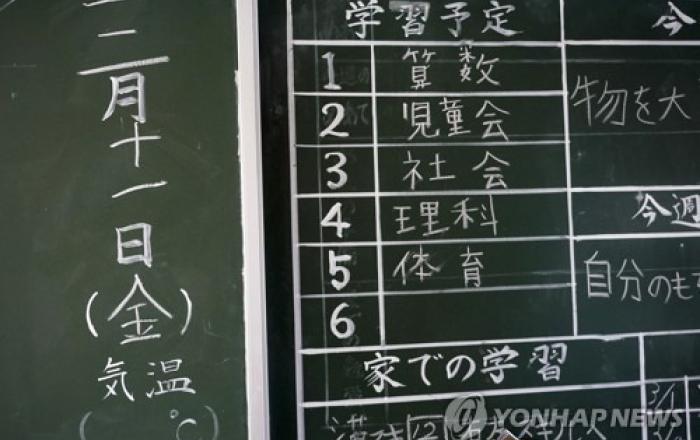 三月十一日(金)
気温
( ℃)
学習予定
1 算数
2 児童会
3 社会
4 理科
5 体育
6
家での学習
今
物を大
今週
自分のも
YONHAP NEWS